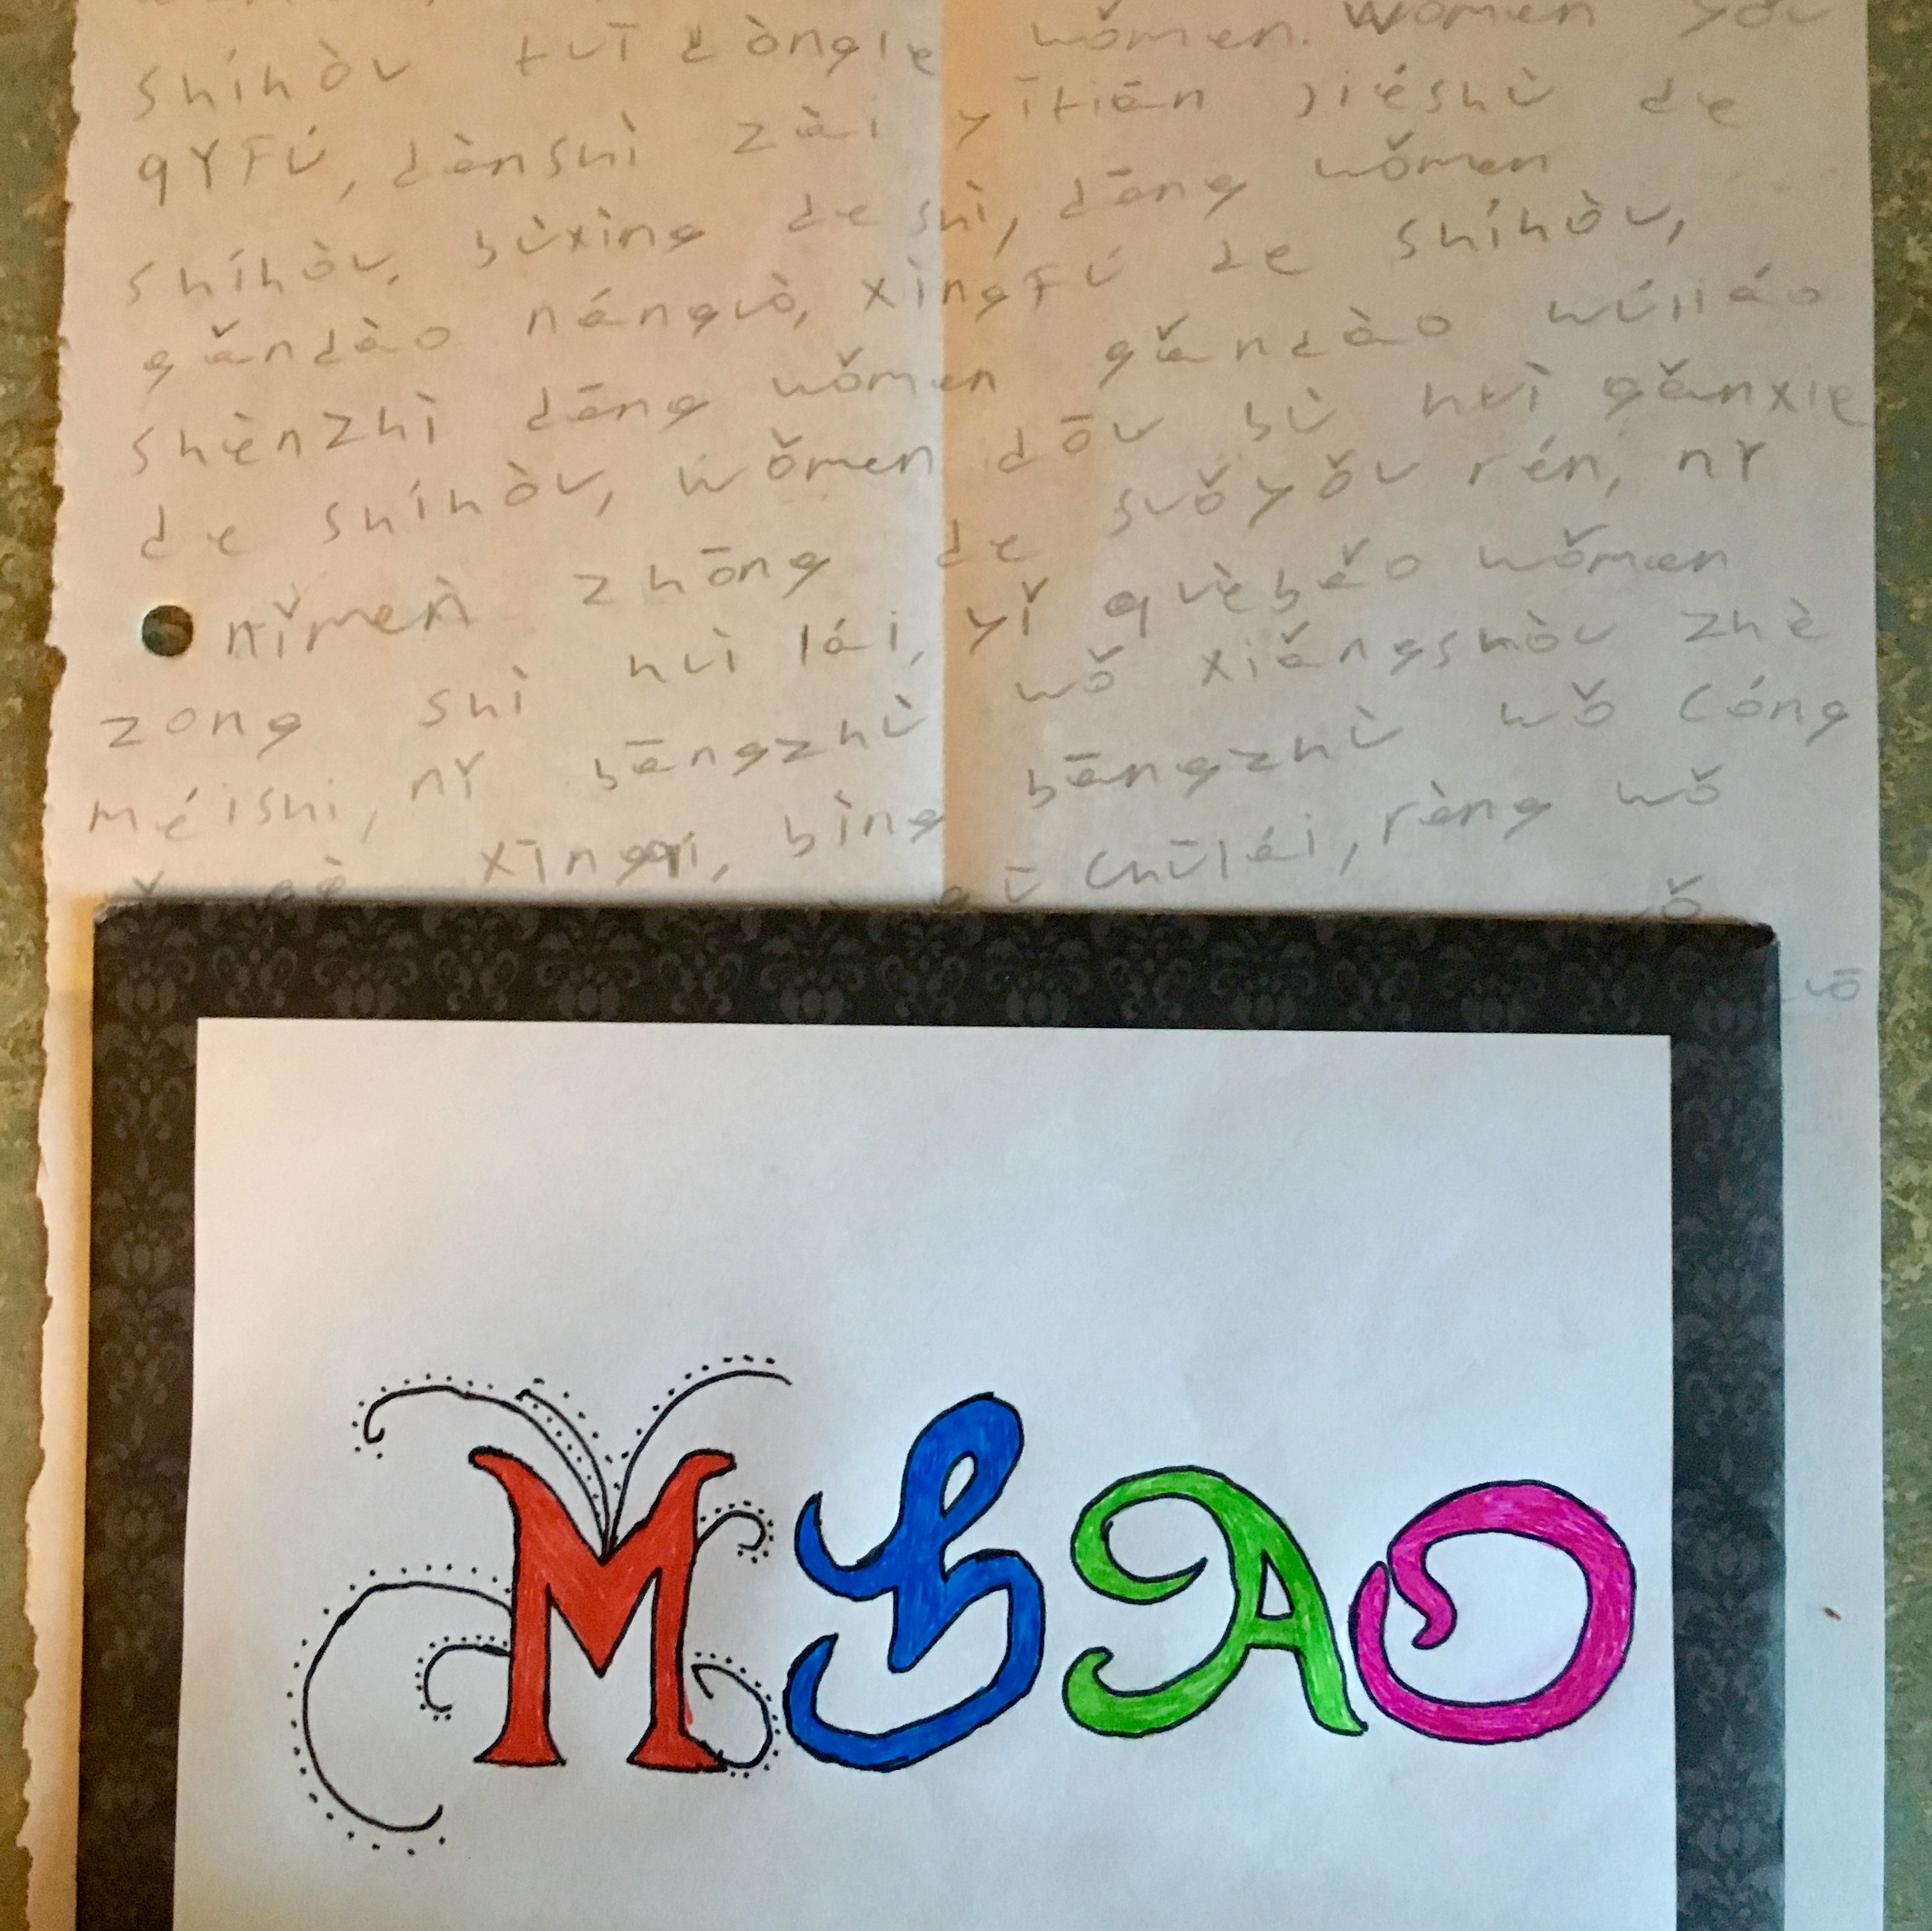 shíhòu tuī dòngle wǒmen. Women yǒu
qǐFú, dànshì zài yītiān jiéshù de
shíhòu. bùxìng de shì, dāng wǒmen
gǎndào nánguò, xìngFú de shíhòu,
shènzhì dāng wǒmen gǎndào wúliáo
de shíhòu, wǒmen dōu bù huì gǎnxie
nǐmen zhōng de suǒyǒu rén, nǐ
zong shì huì lái, yǐ quèbǎo wǒmen
méishi, nǐ bāngzhù wǒ xiǎngshòu zhè
gè xīngqí, bìng bāngzhù wǒ cóng
gū chūlái, ràng wǒ
MIAO